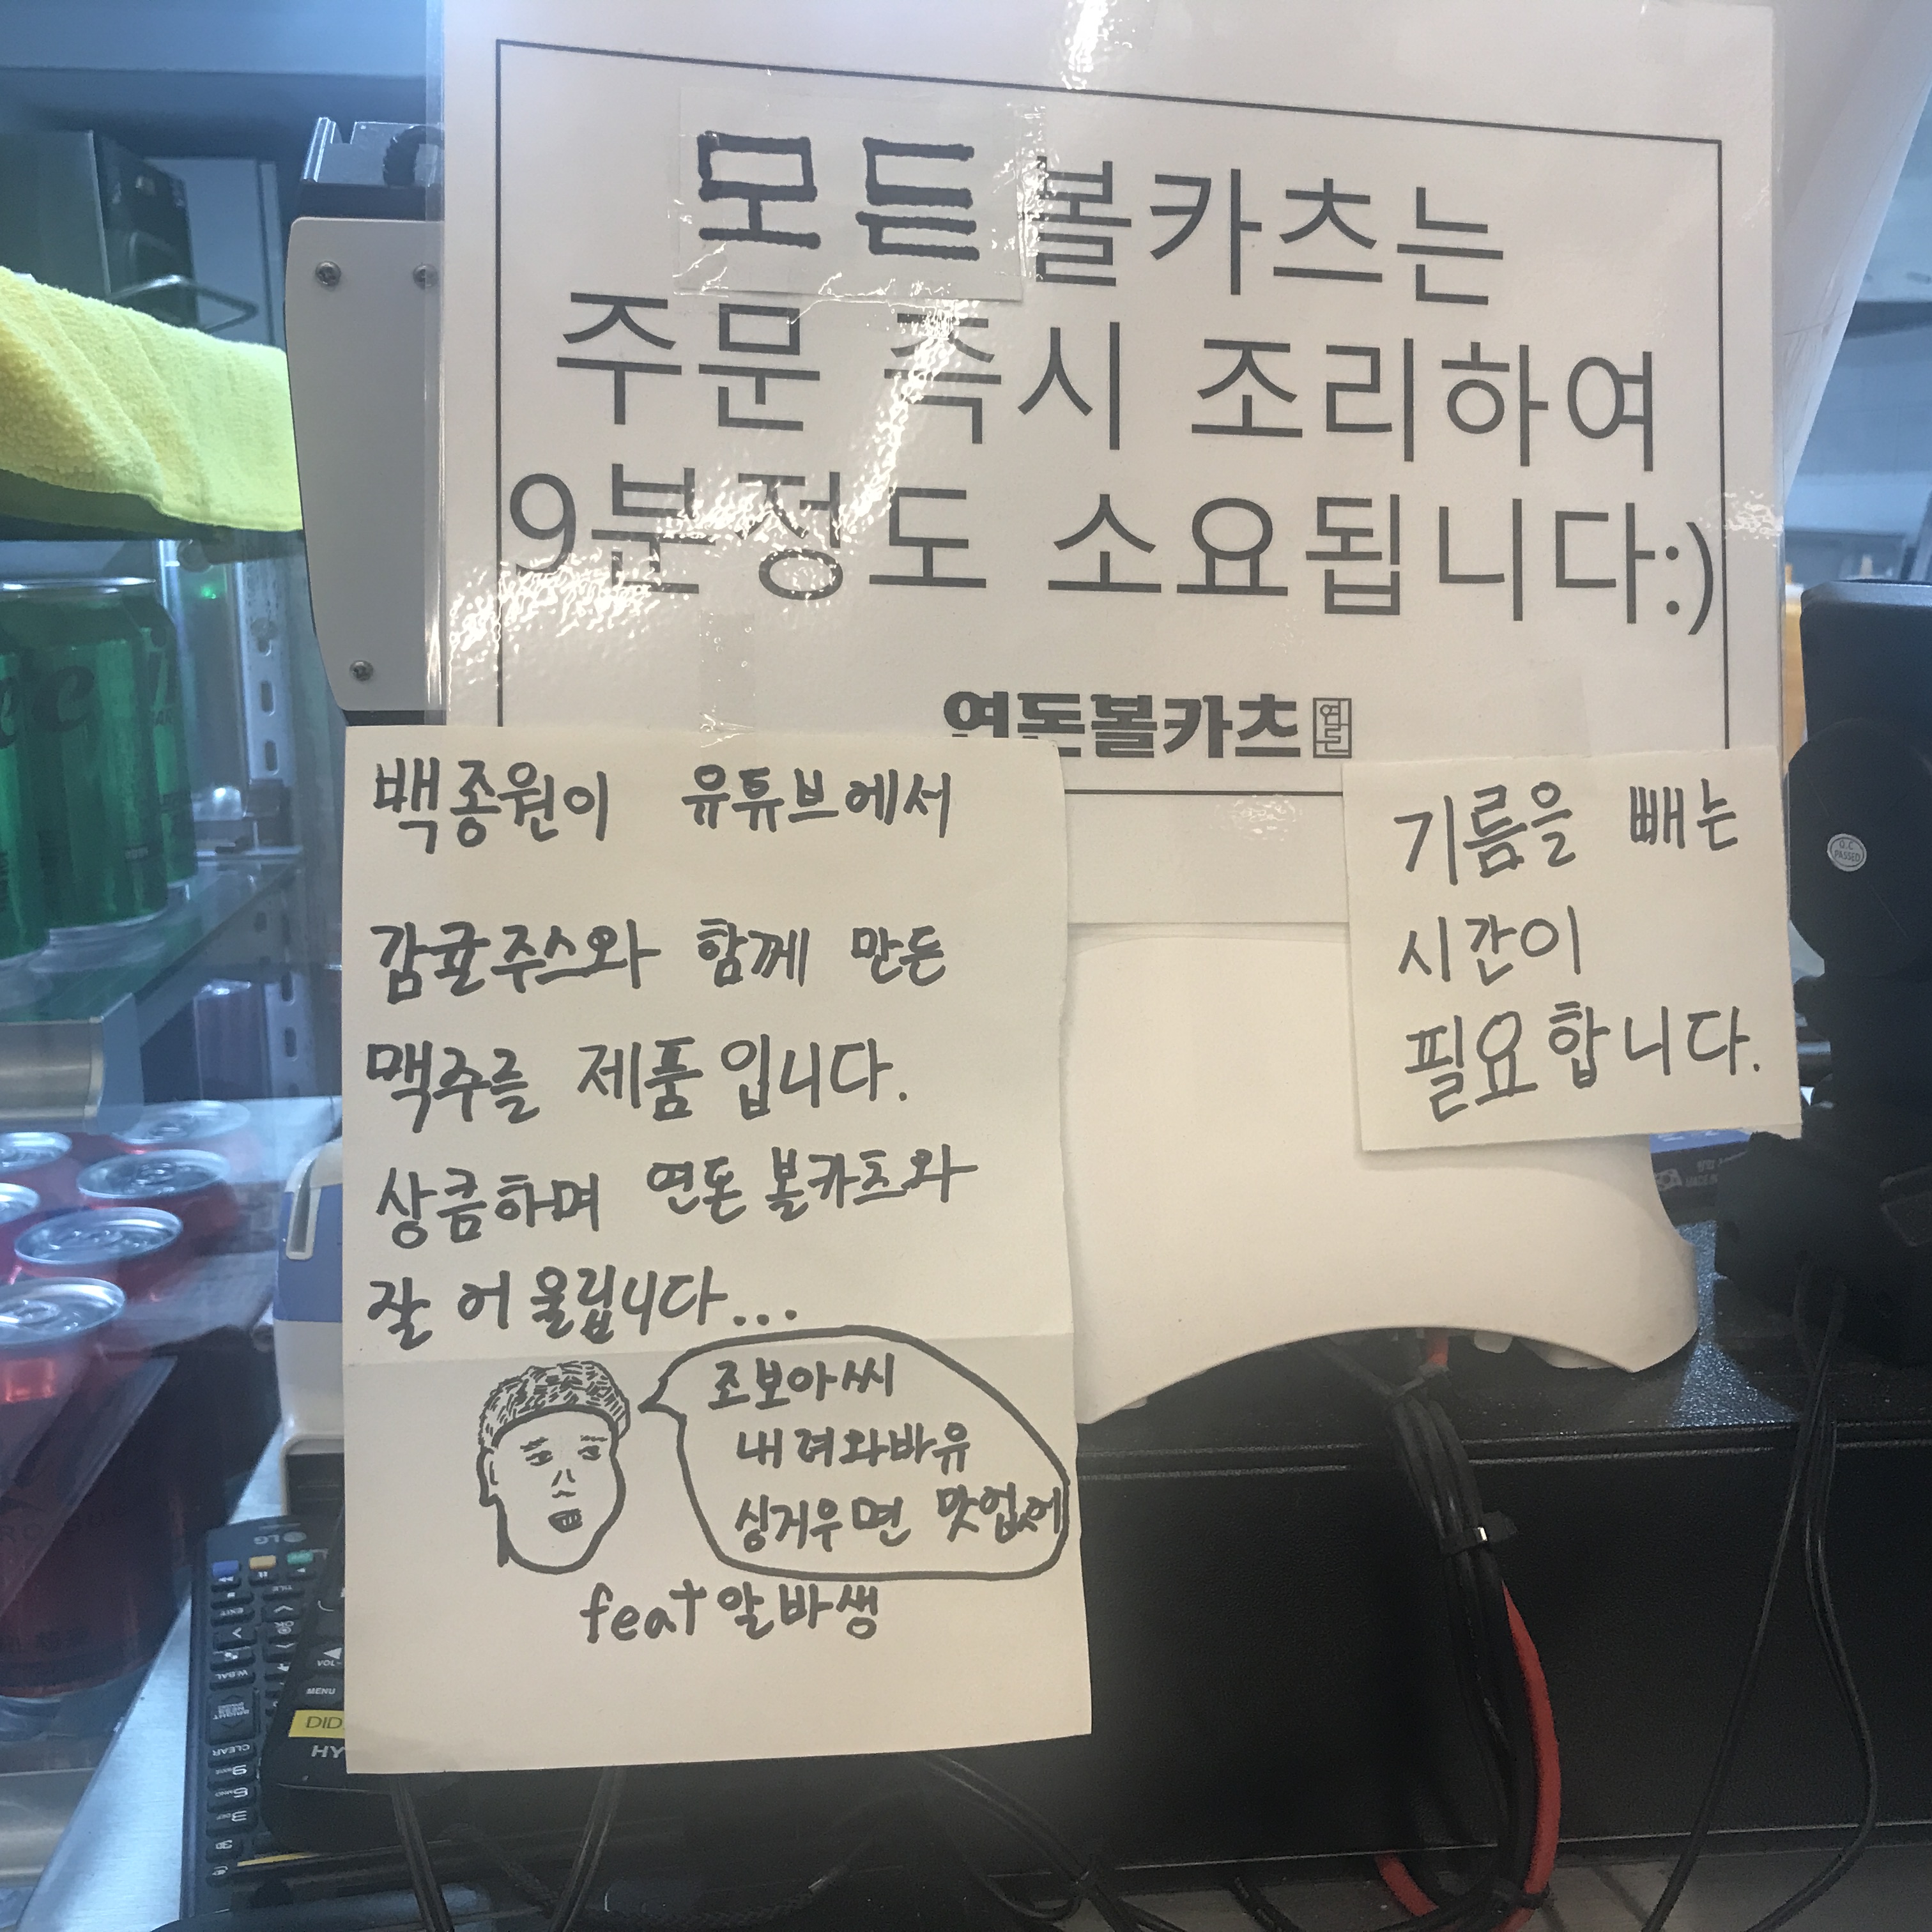 모든 볼카츠는
주문 즉시 조리하여
9분정도 소요됩니다:)
연돈볼카츠 연돈
백종원이 유튜브에서
감귤주스와 함께 만든
맥주를 제품입니다.
상큼하며 연돈 볼카츠와
잘 어울립니다...
조보아씨
내려와바유
싱거우면 맛없어
feat 알바생
기름을 빼는
시간이
필요합니다.
Q.C
PASSED
LG
TILE
EXIT
VOL-
MENU
W.BAL
CLEAR
DID
HY